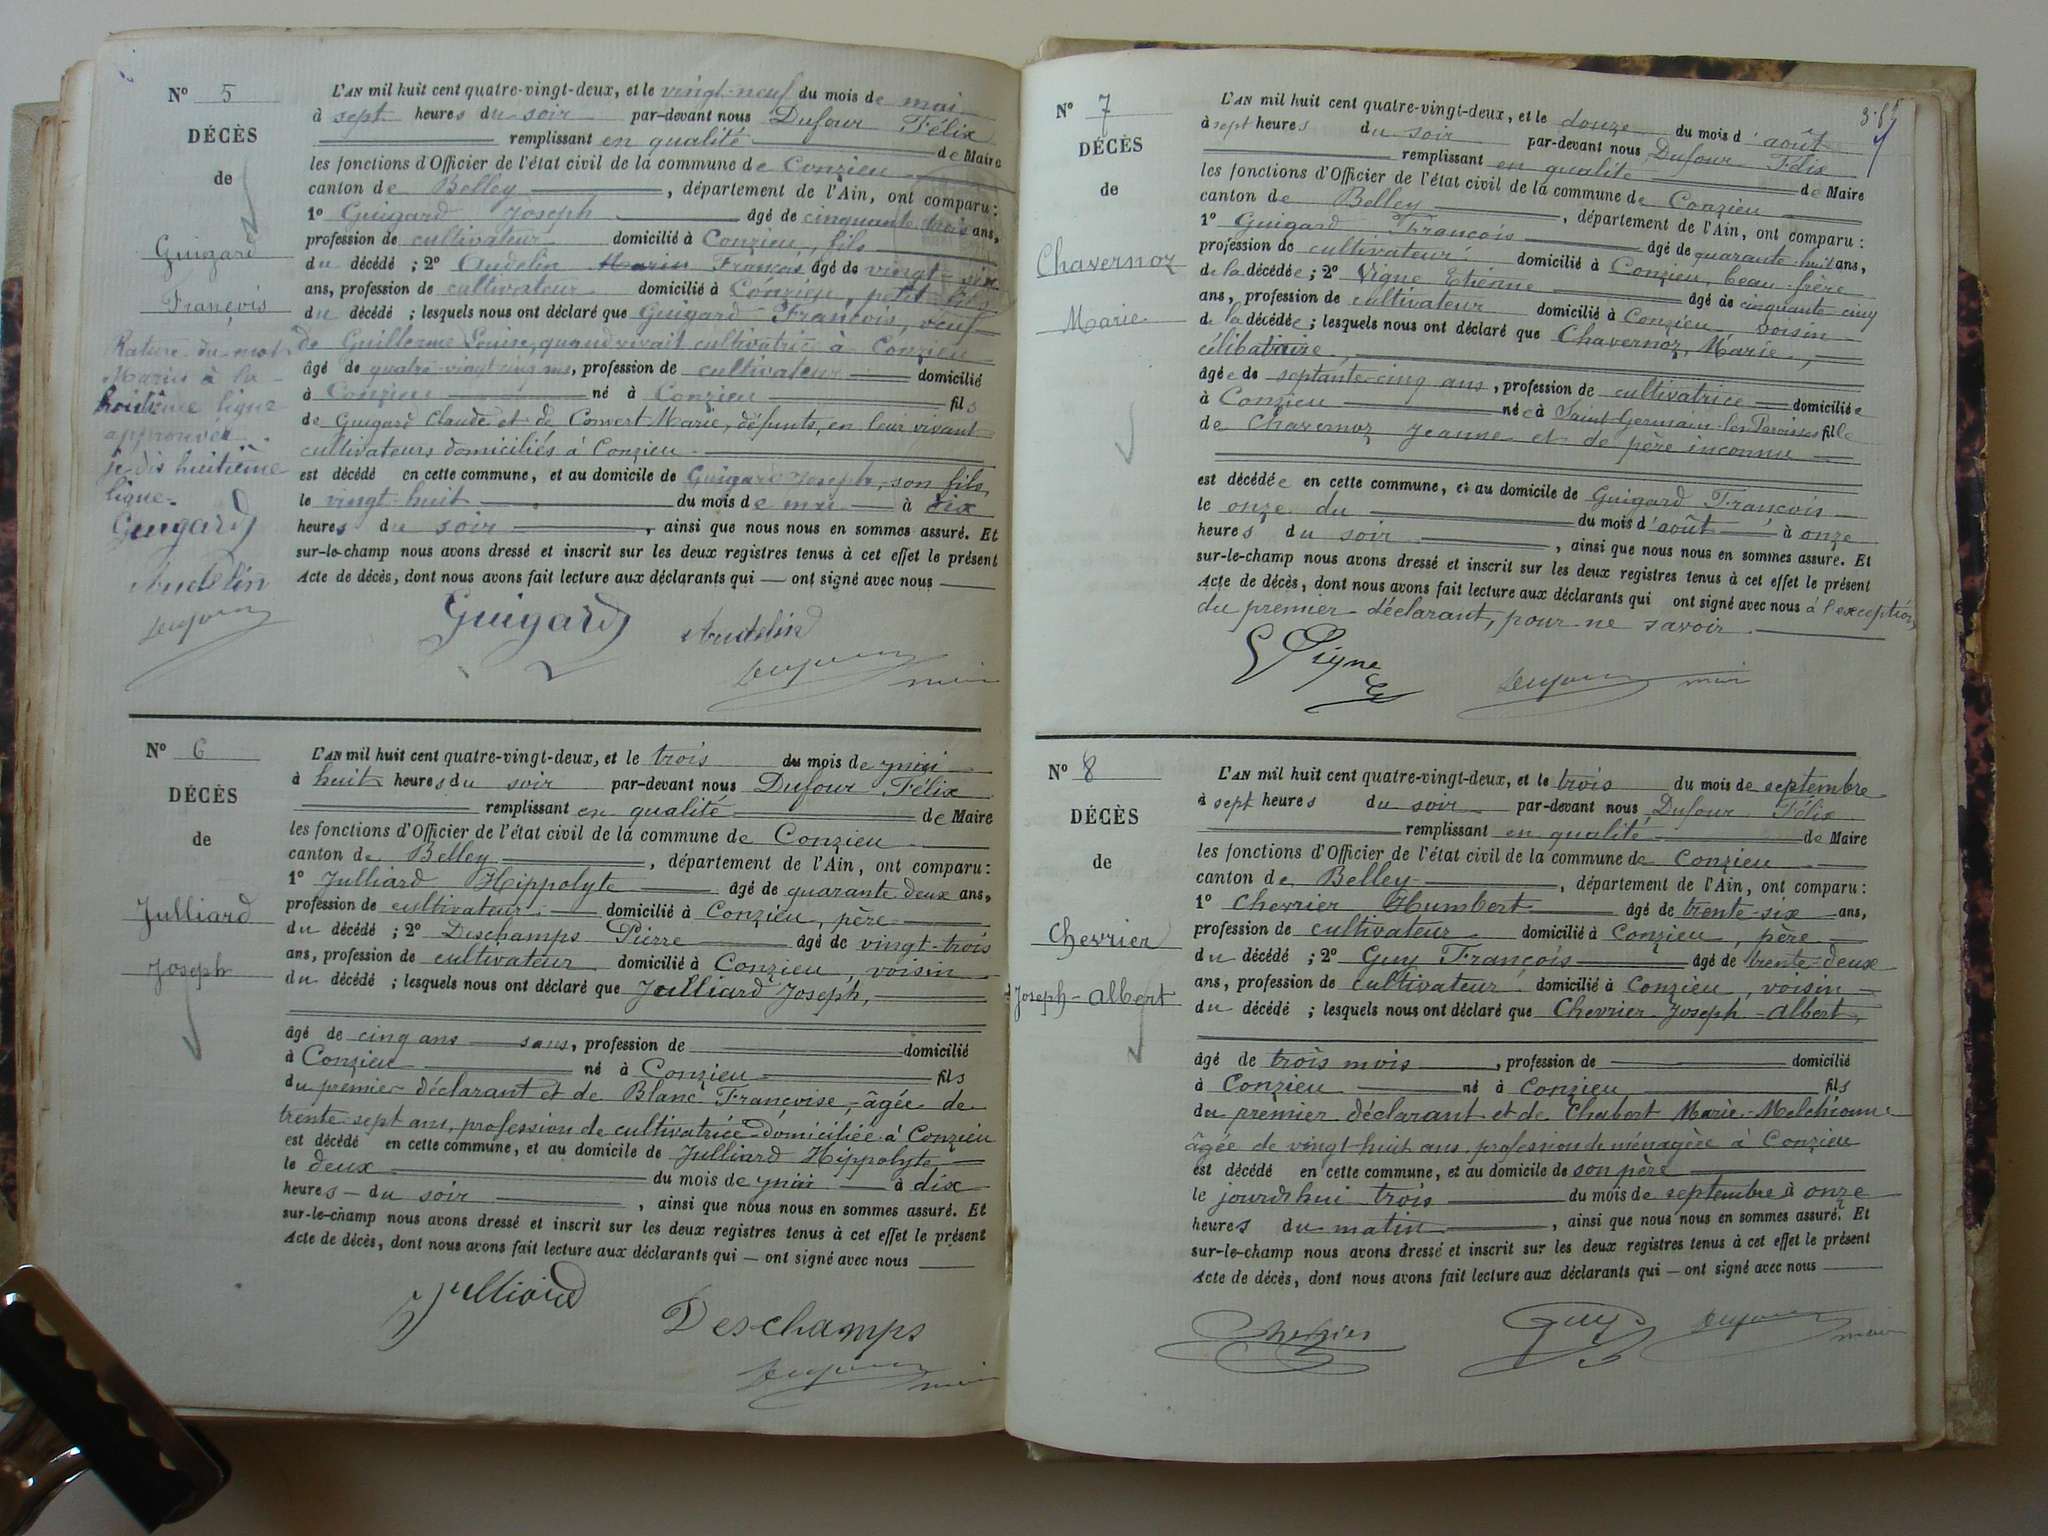 N° 5
DÉCÈS
de
Guigard
François
Rature du mot
Marius à la
huitième ligne
approuvée
je dis huitième
ligne.
Guigard
Audelin
Dufour
L'AN mil huit cent quatre-vingt-deux, et le vingt-neuf du mois de mai
à sept heures du soir par-devant nous Dufour Félix
remplissant en qualité de Maire
les fonctions d'Officier de l'état civil de la commune de Conzieu
canton de Belley, département de l'Ain, ont comparu :
1° Guigard Joseph âgé de cinquante trois ans,
profession de cultivateur domicilié à Conzieu, fils
du décédé ; 2° Audelin François âgé de vingt-six
ans, profession de cultivateur domicilié à Conzieu, petit-fils
du décédé ; lesquels nous ont déclaré que Guigard François, veuf
de Guillerme Louise, quand vivait cultivatrice à Conzieu
âgé de quatre-vingt cinq ans, profession de cultivateur domicilié
à Conzieu né à Conzieu fils
de Guigard Claude et de Convert Marie, défunts, en leur vivant
cultivateurs domiciliés à Conzieu
est décédé en cette commune, et au domicile de Guigard Joseph, son fils,
le vingt-huit du mois de mai à dix
heures du soir, ainsi que nous nous en sommes assuré. Et
sur-le-champ nous avons dressé et inscrit sur les deux registres tenus à cet effet le présent
Acte de décès, dont nous avons fait lecture aux déclarants qui — ont signé avec nous
Guigard Audelin
Dufour maire
N° 6
DÉCÈS
de
Julliard
Joseph
L'AN mil huit cent quatre-vingt-deux, et le trois du mois de
à huit heures du soir par-devant nous Dufour Félix
remplissant en qualité de Maire
les fonctions d'Officier de l'état civil de la commune de Conzieu
canton de Belley, département de l'Ain, ont comparu :
1° Julliard Hippolyte âgé de quarante deux ans,
profession de cultivateur domicilié à Conzieu, père
du décédé ; 2° Deschamps Pierre âgé de vingt-trois
ans, profession de cultivateur domicilié à Conzieu, voisin
du décédé ; lesquels nous ont déclaré que Julliard Joseph,
âgé de cinq ans sans, profession de domicilié
à Conzieu né à Conzieu fils
du premier déclarant et de Blanc Françoise, âgée de
trente-sept ans, profession de cultivatrice domiciliée à Conzieu
est décédé en cette commune, et au domicile de Julliard Hippolyte
le deux du mois de à dix
heures — du soir, ainsi que nous nous en sommes assuré. Et
sur-le-champ nous avons dressé et inscrit sur les deux registres tenus à cet effet le présent
Acte de décès, dont nous avons fait lecture aux déclarants qui — ont signé avec nous
Julliard
Deschamps
Dufour maire
N° 7
DÉCÈS
de
Chavernoz
Marie
L'AN mil huit cent quatre-vingt-deux, et le douze du mois d'août
à sept heures du soir par-devant nous Dufour Félix
remplissant en qualité de Maire
les fonctions d'Officier de l'état civil de la commune de Conzieu
canton de Belley, département de l'Ain, ont comparu :
1° Guigard François âgé de quarante-huit ans,
profession de cultivateur domicilié à Conzieu, beau-frère
de la décédée ; 2° Vigne Etienne âgé de cinquante cinq
ans, profession de cultivateur domicilié à Conzieu, voisin
de la décédée ; lesquels nous ont déclaré que Chavernoz, Marie,
célibataire,
âgée de septante-cinq ans, profession de cultivatrice domiciliée
à Conzieu née à Saint-Germain-les-Paroisses fille
de Chavernoz Jeanne et de père inconnu
est décédée en cette commune, et au domicile de Guigard François
le onze du du mois d'août à onze
heures du soir, ainsi que nous nous en sommes assuré. Et
sur-le-champ nous avons dressé et inscrit sur les deux registres tenus à cet effet le présent
Acte de décès, dont nous avons fait lecture aux déclarants qui ont signé avec nous à l'exception
du premier déclarant, pour ne savoir
Vigne
Dufour maire
N° 8
DÉCÈS
de
Chevrier
Joseph-Albert
L'AN mil huit cent quatre-vingt-deux, et le trois du mois de septembre
à sept heures du soir par-devant nous Dufour Félix
remplissant en qualité de Maire
les fonctions d'Officier de l'état civil de la commune de Conzieu
canton de Belley, département de l'Ain, ont comparu :
1° Chevrier Humbert âgé de trente-six ans,
profession de cultivateur domicilié à Conzieu, père
du décédé ; 2° Guy François âgé de trente-deux
ans, profession de cultivateur domicilié à Conzieu, voisin
du décédé ; lesquels nous ont déclaré que Chevrier Joseph-Albert,
âgé de trois mois, profession de domicilié
à Conzieu né à Conzieu fils
du premier déclarant et de Chabert Marie-Melchionne
âgée de vingt huit ans, profession de ménagère à Conzieu
est décédé en cette commune, et au domicile de son père
le jourd'hui trois du mois de septembre à onze
heures du matin, ainsi que nous nous en sommes assuré. Et
sur-le-champ nous avons dressé et inscrit sur les deux registres tenus à cet effet le présent
Acte de décès, dont nous avons fait lecture aux déclarants qui — ont signé avec nous
Chevrier Guy Dufour
maire